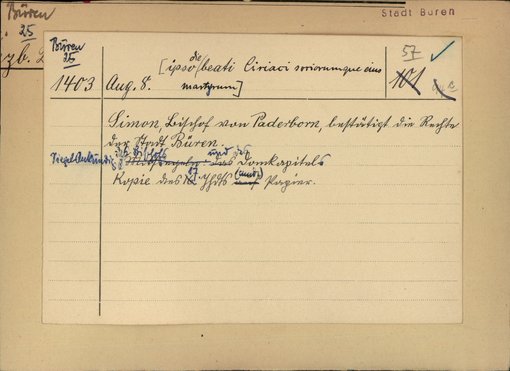 Büren
25
Stadt Büren
Büren
25
1403 Aug. 8. [ipso die beati Ciriaci sociorumque eius
martyrum]
57
101
Simon, Bischof von Paderborn, bestätigt die Rechte
der Stadt Büren.
Siegelankündig. des Bischofs und des Domkapitels
Kopie des 17. Jhdts Papier.